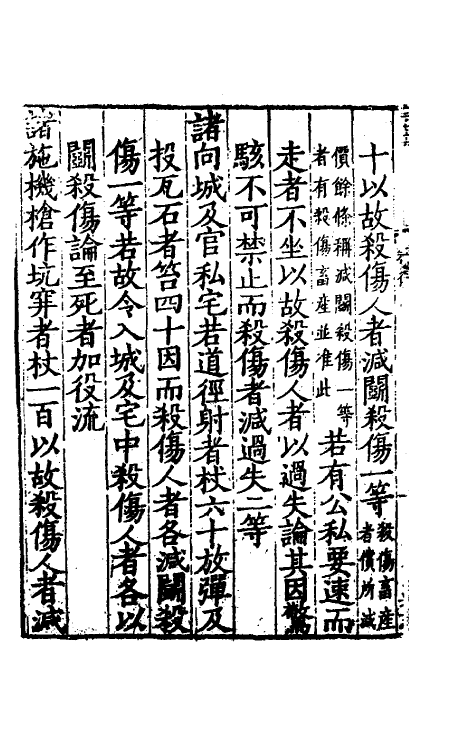 十以故殺傷人者減鬬殺傷一等殺傷畜產者償所減
價餘條稱減鬬殺傷一等者有殺傷畜產並准此若有公私要速而
走者不坐以故殺傷人者以過失論其因驚
駭不可禁止而殺傷者減過失二等
諸向城及官私宅若道徑射者杖六十放彈及
投瓦石者笞四十因而殺傷人者各減鬬殺
傷一等若故令入城及宅中殺傷人者各以
鬬殺傷論至死者加役流
諸施機槍作坑穽者杖一百以故殺傷人者減